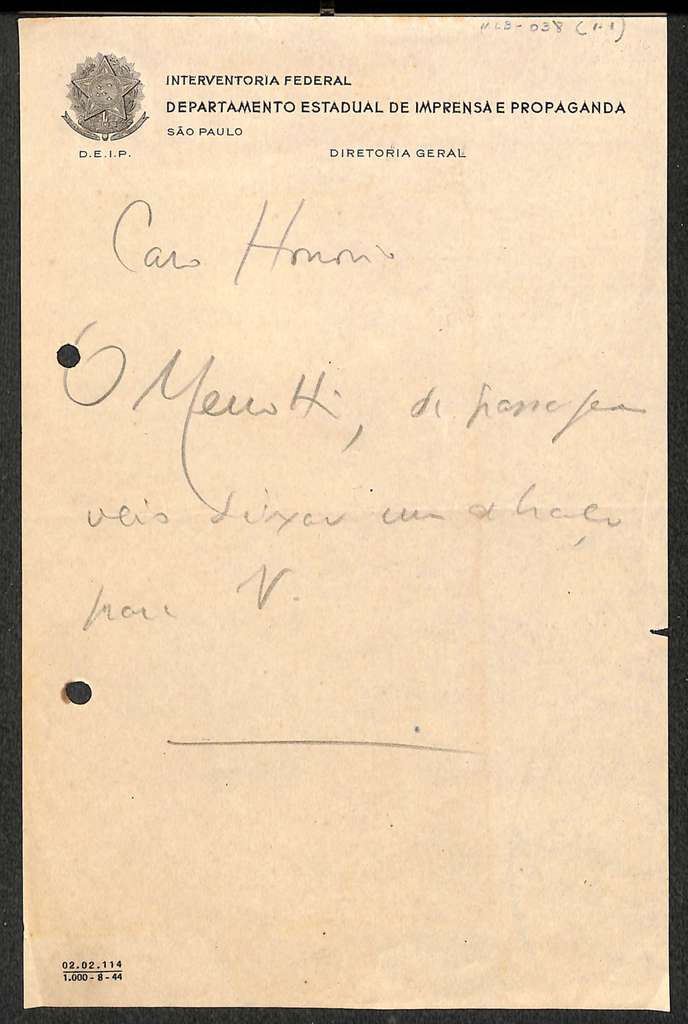 MLB-038 (1-1)
INTERVENTORIA FEDERAL
DEPARTAMENTO ESTADUAL DE IMPRENSA E PROPAGANDA
SÃO PAULO
D.E.I.P.
DIRETORIA GERAL
Caro Honorio
O Menotti, de passagem
veio deixar um abraço
para V.
02.02.114
1.000 - 8 - 44